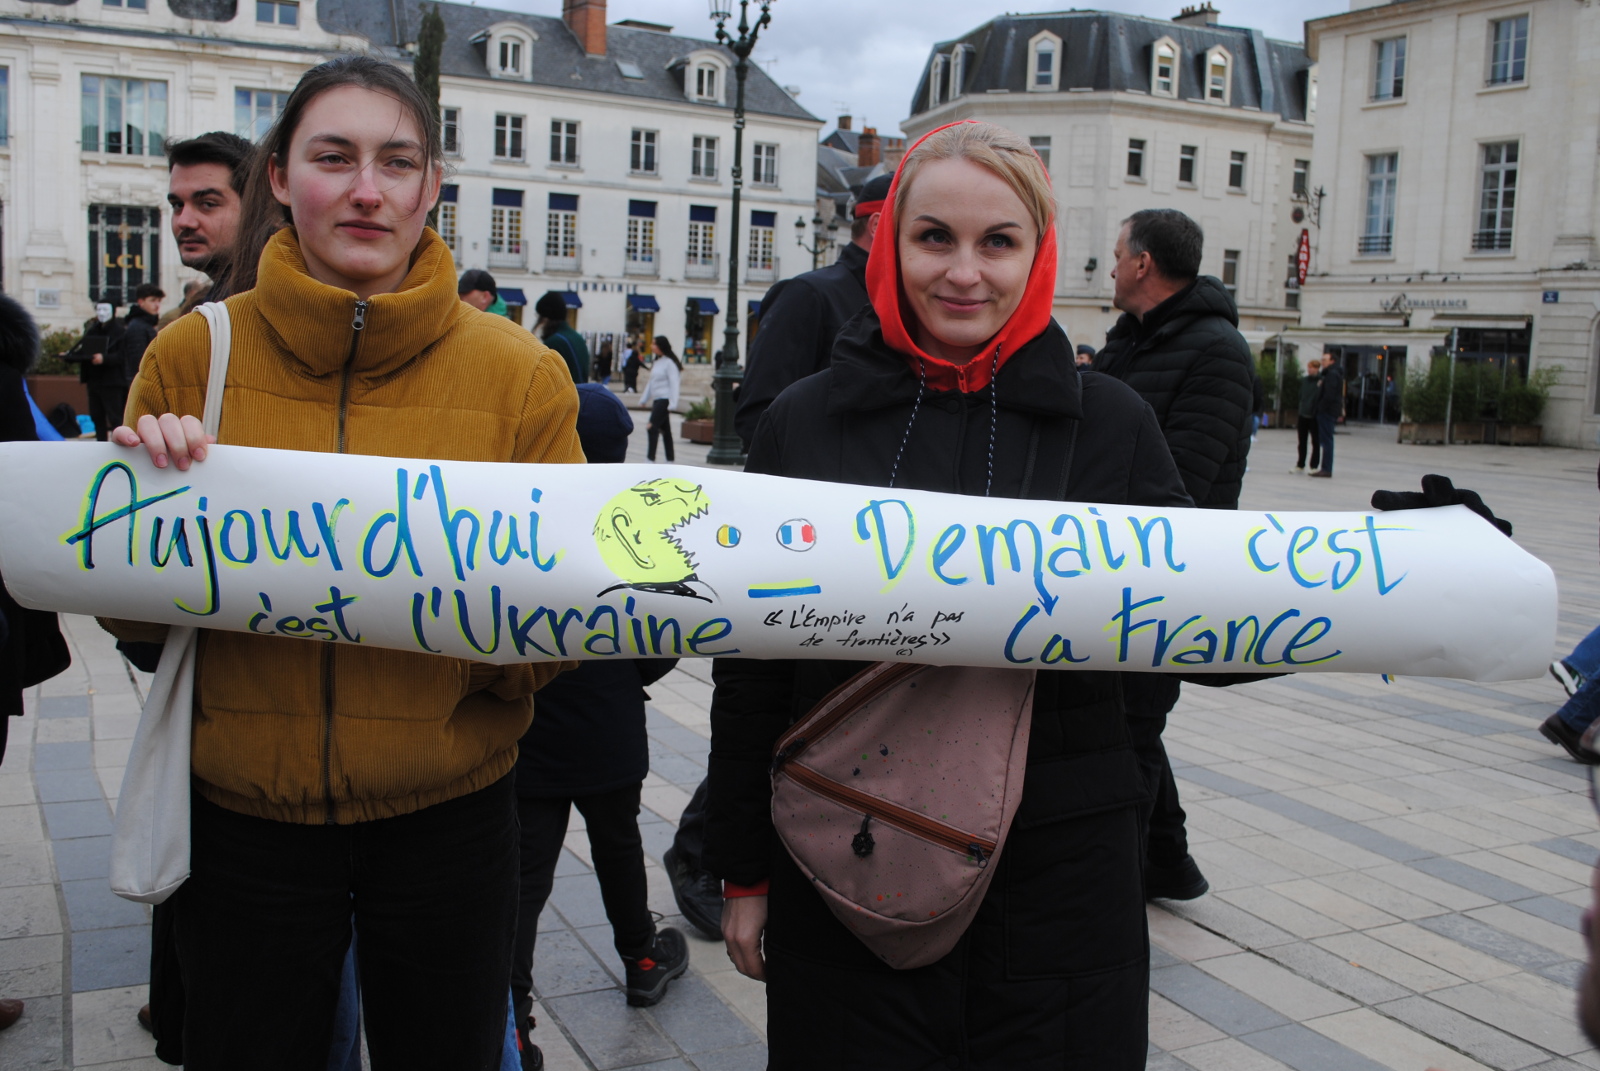 LCL
LIBRAIRIE
TABAC
LA RENAISSANCE
Aujourd'hui
c'est l'Ukraine
« L'Empire n'a pas
de frontières »
(c)
Demain c'est
la France